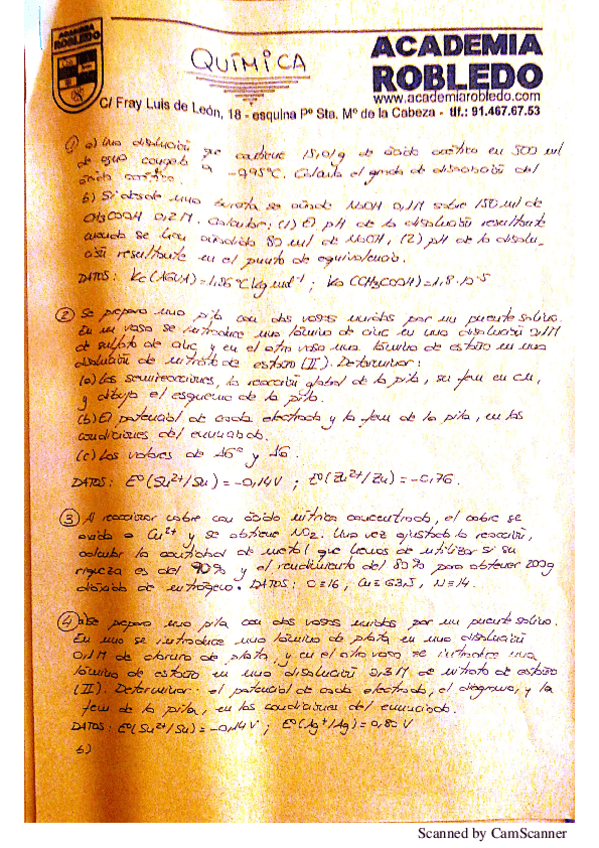 ACADEMIA
ROBLEDO
QUÍMICA
ACADEMIA
ROBLEDO
www.academiarobledo.com
C/ Fray Luis de León, 18 - esquina Pº Sta. Mº de la Cabeza - tlf.: 91.467.67.53
① a) Una disolución que contiene 15,01g de ácido acético en 500 ml
de agua congela a -0,95°C. Calcula el grado de disociación del
ácido acético.
b) Si desde una bureta se añade NaOH 0,1M sobre 150 ml de
CH3COOH 0,2M. Calcular: (1) El pH de la disolución resultante
cuando se han añadido 80 ml de NaOH, (2) pH de la disolu-
ción resultante en el punto de equivalencia.
DATOS: Kc(AGUA)=1,86°C kg mol⁻¹; Ka(CH3COOH)=1,8·10⁻⁵
② Se prepara una pila con dos vasos unidos por un puente salino.
En un vaso se introduce una lámina de cinc en una disolución 0,1M
de sulfato de cinc, y en el otro vaso una lámina de estaño en una
disolución de nitrato de estaño (II). Determinar:
(a) Las semirreacciones, la reacción global de la pila, su fem en C.N,
y dibuja el esquema de la pila.
(b) El potencial de cada electrodo y la fem de la pila, en las
condiciones del enunciado.
(c) Los valores de ΔG° y ΔG.
DATOS: E°(Sn²⁺/Sn)=-0,14V ; E°(Zn²⁺/Zn)=-0,76.
③ Al reaccionar cobre con ácido nítrico concentrado, el cobre se
oxida a Cu²⁺ y se obtiene NO2. Una vez ajustada la reacción,
calcular la cantidad de metal que hemos de utilizar si su
riqueza es del 90% y el rendimiento del 80% para obtener 200g
dióxido de nitrógeno. DATOS: O=16; Cu=63,5, N=14.
④ a) Se prepara una pila con dos vasos unidos por un puente salino.
En uno se introduce una lámina de plata en una disolución
0,1M de cloruro de plata, y en el otro vaso se introduce una
lámina de estaño en una disolución 0,3M de nitrato de estaño
(II). Determinar: el potencial de cada electrodo, el diagrama, y la
fem de la pila, en las condiciones del enunciado.
DATOS: E°(Sn²⁺/Sn)=-0,14V ; E°(Ag⁺/Ag)=0,80V
b)
Scanned by CamScanner